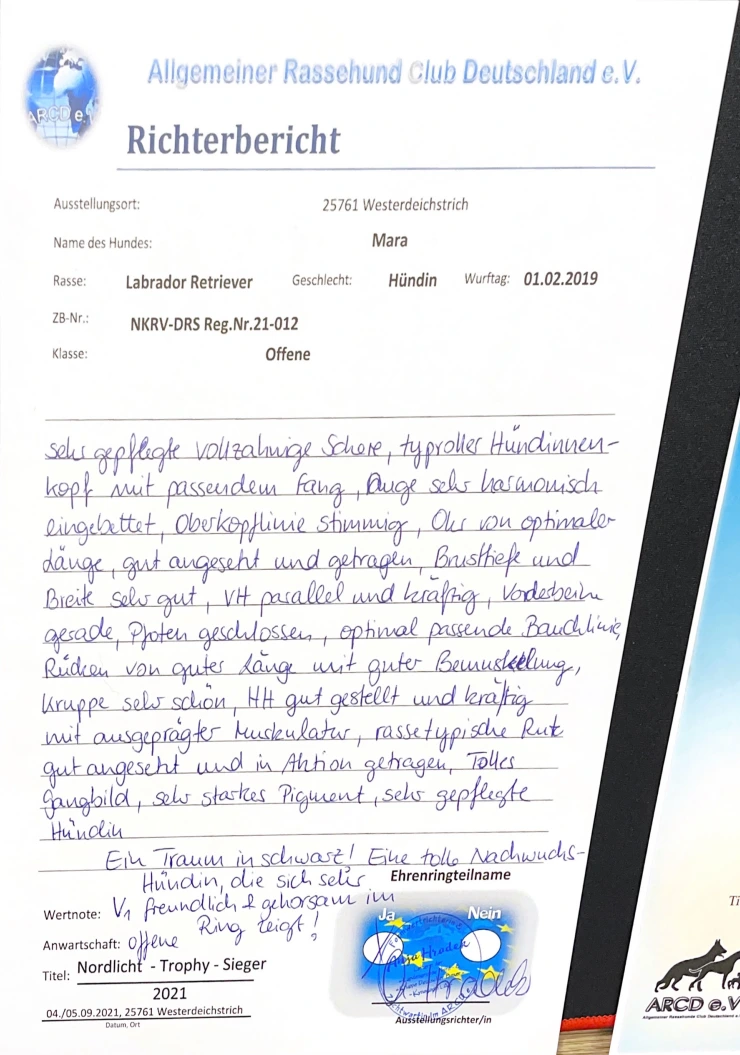 Allgemeiner Rassehund Club Deutschland e.V.
ARCD e.
Richterbericht
Ausstellungsort: 25761 Westerdeichstrich
Name des Hundes: Mara
Rasse: Labrador Retriever Geschlecht: Hündin Wurftag: 01.02.2019
ZB-Nr.: NKRV-DRS Reg.Nr.21-012
Klasse: Offene
sehr gepflegte vollzahnige Schere, typvoller Hündinnen-
kopf mit passendem Fang, Auge sehr harmonisch
eingebettet, Oberkopflinie stimmig, Ohr von optimaler
Länge, gut angesetzt und getragen, Brusttiefe und
Breite sehr gut, VH parallel und kräftig, Vorderbeine
gerade, Pfoten geschlossen, optimal passende Bauchlinie,
Rücken von guter Länge mit guter Bemuskelung,
Kruppe sehr schön, HH gut gestellt und kräftig
mit ausgeprägter Muskulatur, rassetypische Rute
gut angesetzt und in Aktion getragen, Tolles
Gangbild, sehr starkes Pigment, sehr gepflegte
Hündin
Ein Traum in schwarz! Eine tolle Nachwuchs-
Hündin, die sich sehr
freundlich & gehorsam im
Ring zeigt!
Ehrenringteilname
Ja Nein
Wertnote: V1
Anwartschaft: offene
Titel: Nordlicht - Trophy - Sieger
2021
04./05.09.2021, 25761 Westerdeichstrich
Datum, Ort
Ausstellungsrichter/in
Ti
ARCD e.V
Allgemeiner Rassehunde Club Deutschland e.V